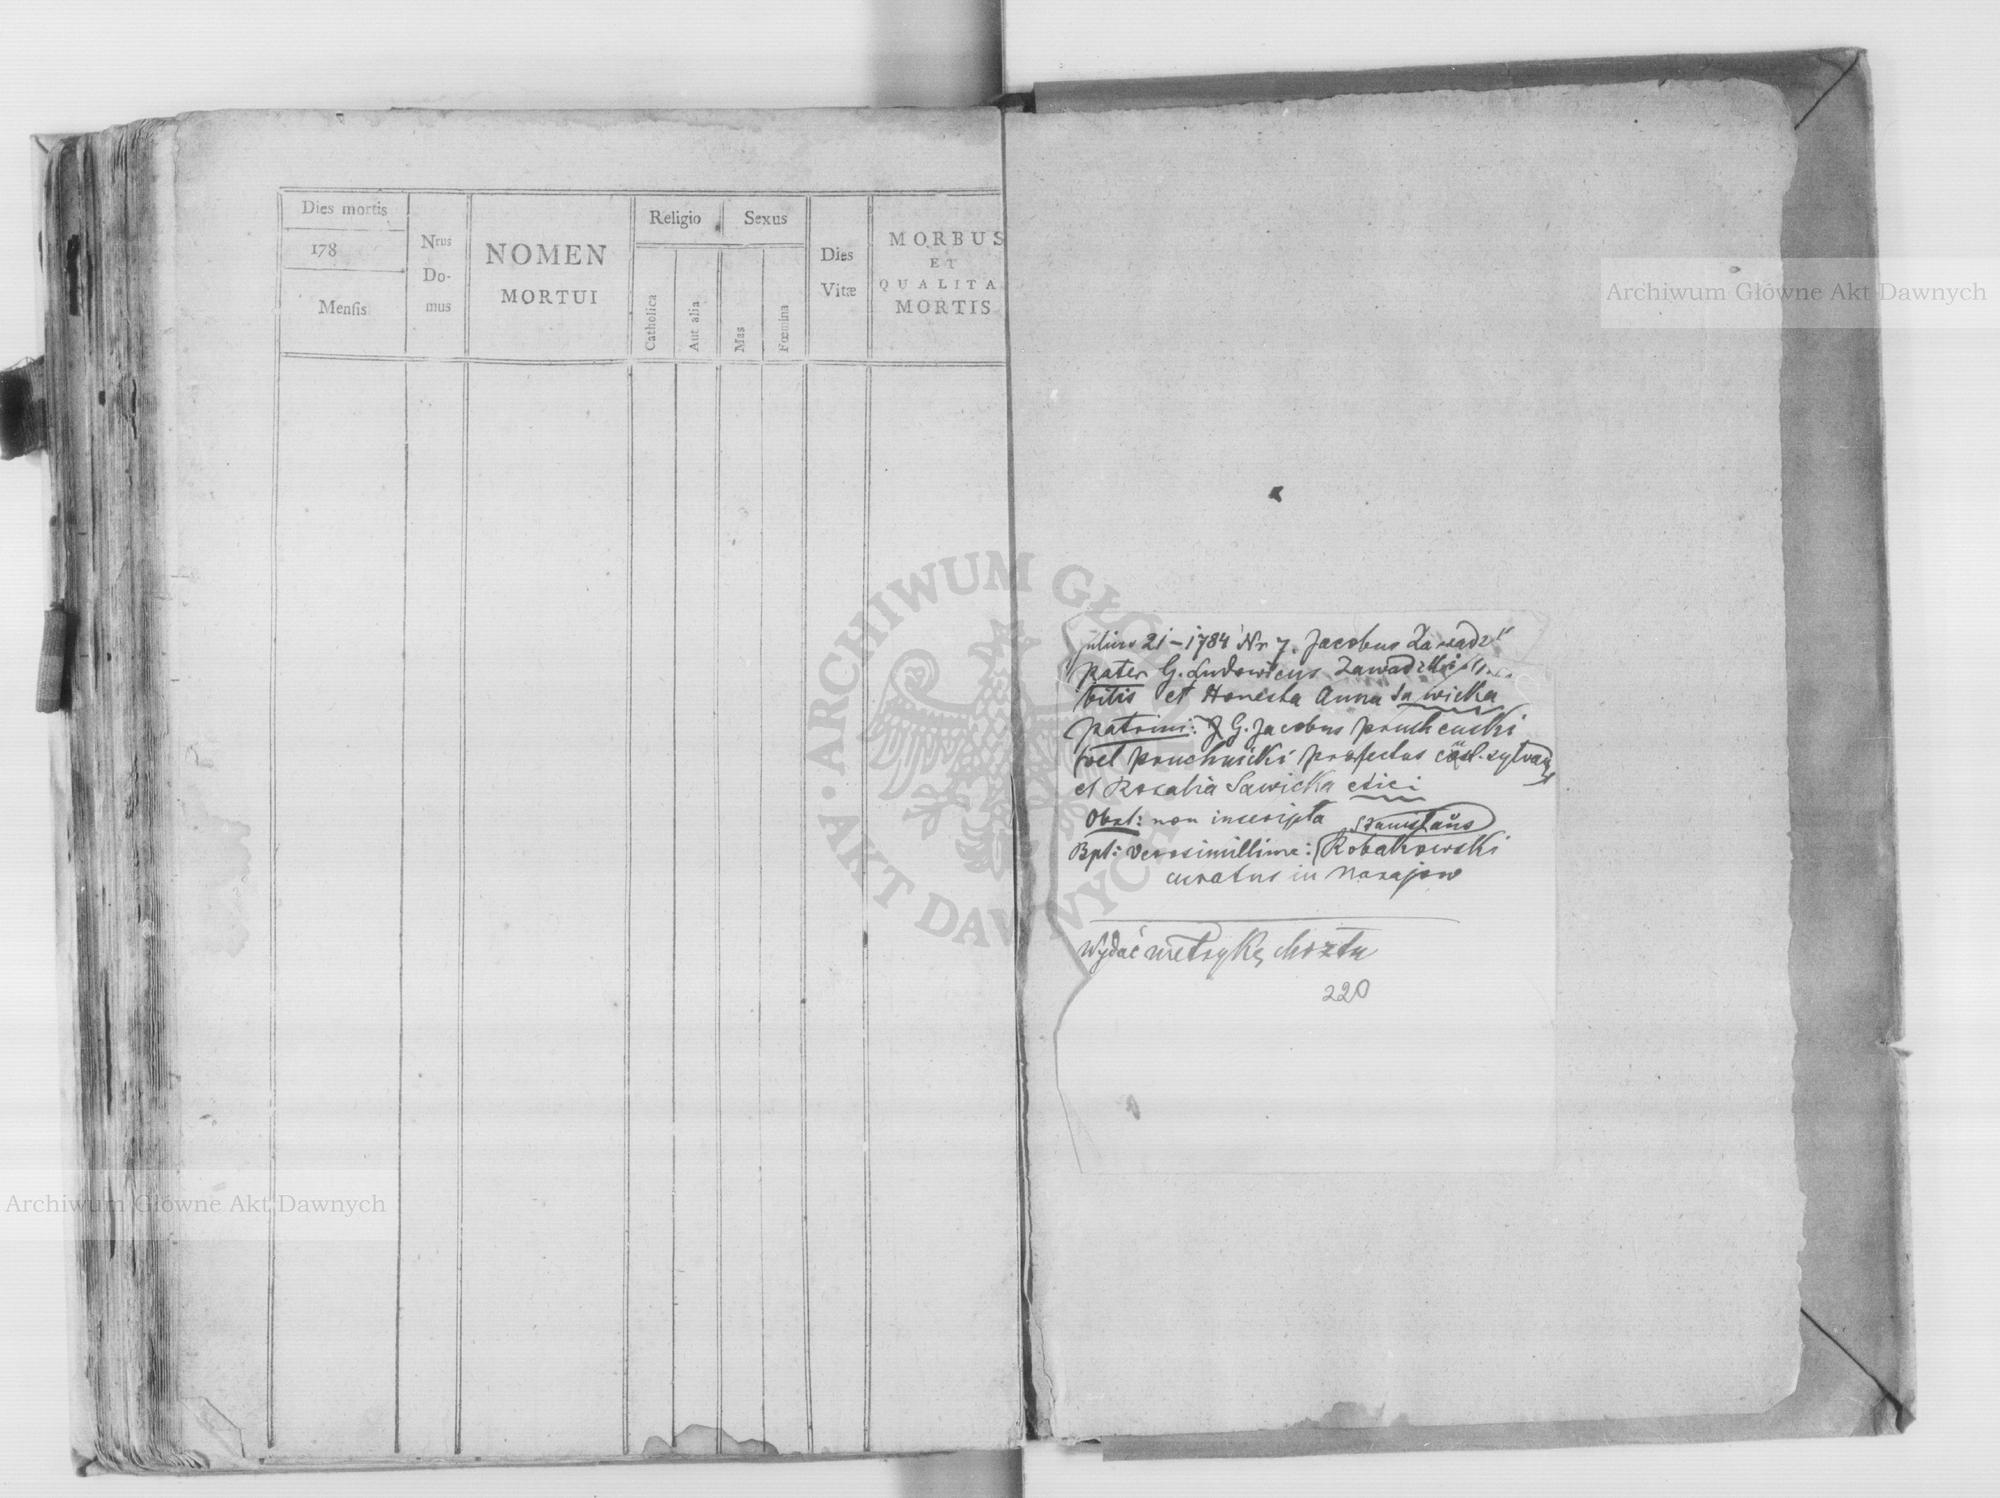 Dies mortis
178
Mensis
Nrus
Do-
mus
NOMEN
MORTUI
Religio
Catholica
Aut alia
Sexus
Mas
Fœmina
Dies
Vitæ
MORBUS
ET
QUALITA
MORTIS
Julius 21 – 1784 Nr 7. Jacobus Zawadz
pater G. Ludowicus Zawadzki
bilis et Honesta Anna Sawicka
patrini: G. Jacobus
vel Pruchnicki præfectus
et Rosalia Sawicka
Obst: non inscripta Stanislaus
Bpt: verosimillime: Robakowski
curatus in Narajow
Wydać metrykę chrztu
220
ARCHIWUM GŁÓWNE AKT DAWNYCH
Archiwum Główne Akt Dawnych
Archiwum Główne Akt Dawnych